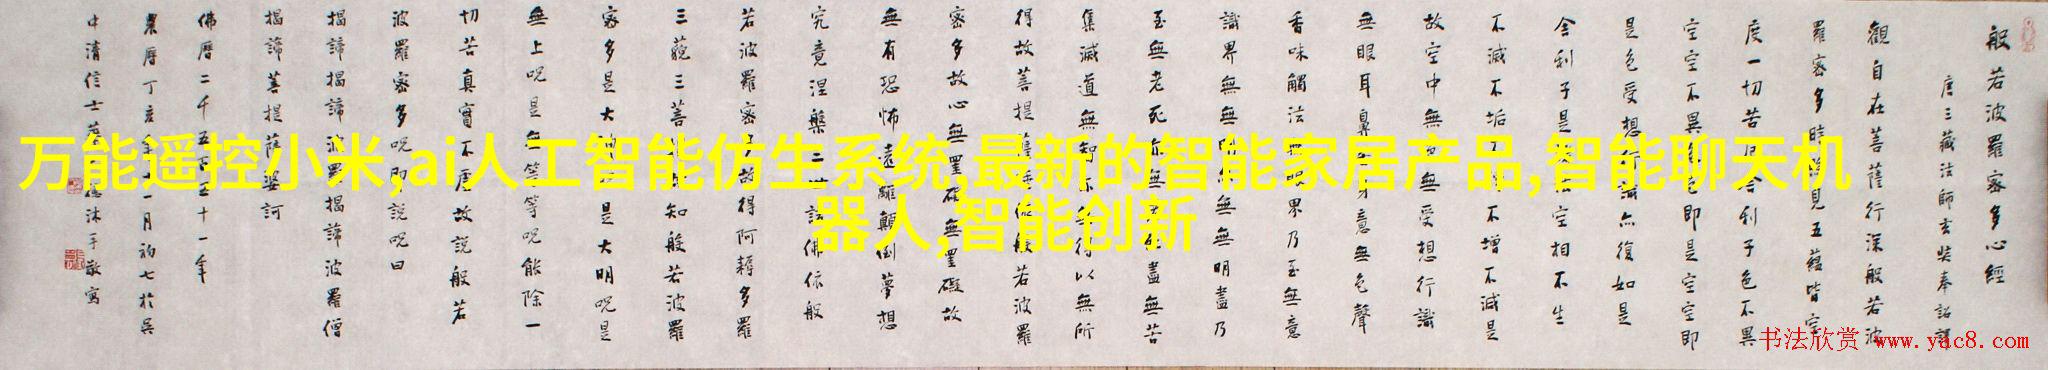 般若波羅密多心經
唐三藏法師玄奘奉詔譯
觀自在菩薩行深般若波
羅密多時照見五蘊皆空
度一切苦厄舍利子色不異
空空不異色色即是空空即
是色受想行識亦復如是
舍利子是諸法空相不生
不滅不垢不淨不增不減是
故空中無色無受想行識
無眼耳鼻舌身意無色聲
香味觸法無眼界乃至無意
識界無無明亦無無明盡乃
至無老死亦無老死盡無苦
集滅道無知亦無得以無所
得故菩提薩埵依般若波羅
密多故心無罣礙無罣礙故
無有恐怖遠離顛倒夢想
究竟涅槃三世諸佛依般
若波羅密多故得阿耨多羅
三藐三菩提故知般若波羅
密多是大神咒是大明咒是
無上咒是無等等咒能除一
切苦真實不虛故說般若
波羅密多咒即說咒曰
揭諦揭諦波羅揭諦波羅僧
揭諦菩提薩婆訶
佛曆二千五百五十一年
農曆丁亥年十一月初七於吳
中清信士沐手敬寫
万能遥控小米,ai人工智能仿生系统,最新的智能家居产品,智能聊天机
器人,智能创新
书法欣赏 www.yac8.com